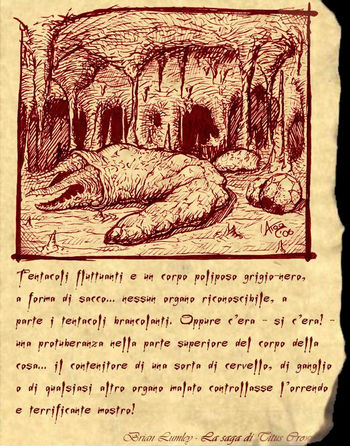 Tentacoli fluttuanti e un corpo poliposo grigio-nero,
a forma di sacco... nessun organo riconoscibile, a
parte i tentacoli brancolanti. Oppure c'era - si c'era! -
una protuberanza nella parte superiore del corpo della
cosa... il contenitore di una sorta di cervello, di ganglio
o di qualsiasi altro organo malato controllasse l'orrendo
e terrificante mostro!
Brian Lumley - La saga di Titus Crow